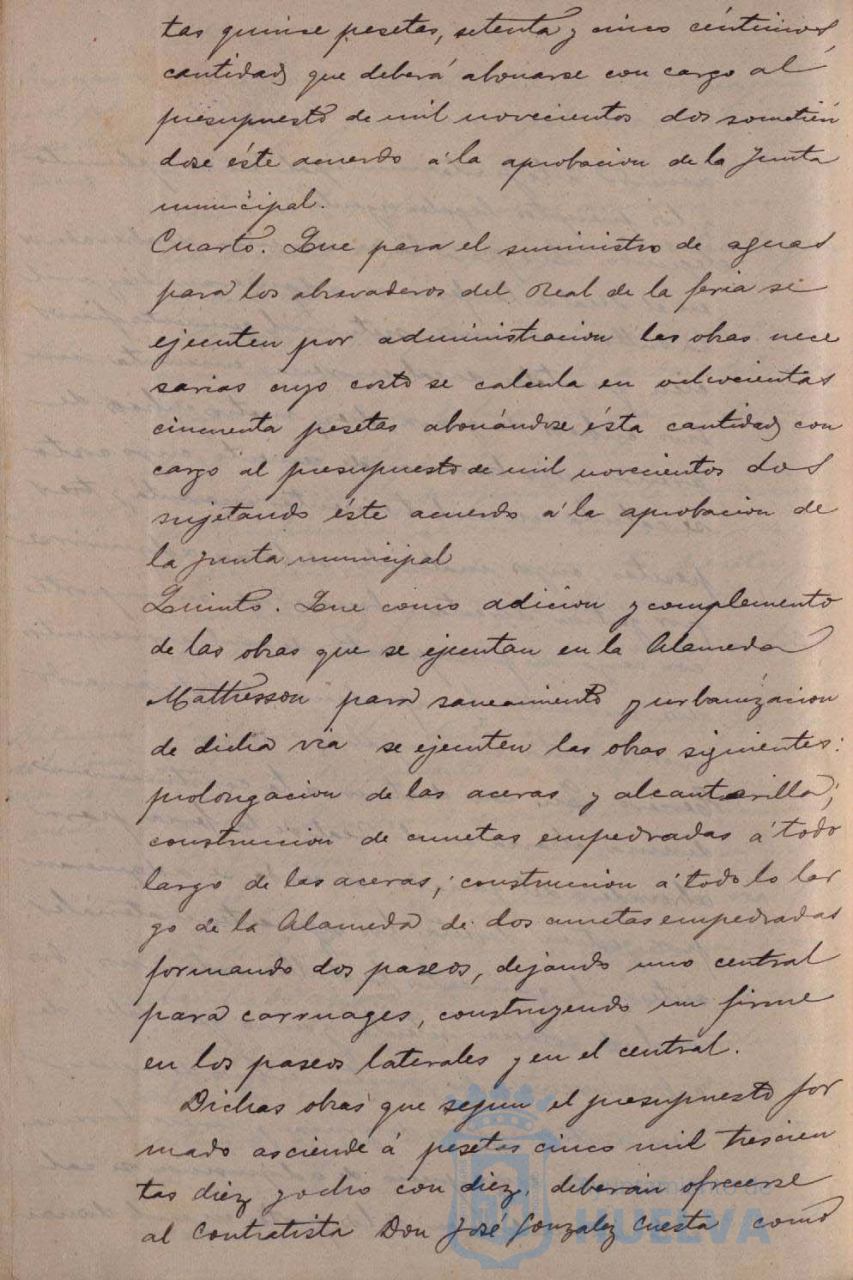 tas quinse pesetas, setenta y cinco céntimos
cantidad que deberá abonarse con cargo al
presupuesto de mil novecientos dos sometién
dose éste acuerdo á la aprobacion de la Junta
municipal.
Cuarto. Que para el suministro de aguas
para los abrevaderos del Real de la feria se
ejecuten por administracion las obras nece
sarias cuyo costo se calcula en ochocientas
cincuenta pesetas abonándose ésta cantidad con
cargo al presupuesto de mil novecientos dos
sujetando éste acuerdo á la aprobacion de
la Junta municipal
Quinto. Que como adicion y complemento
de las obras que se ejecutan en la Alameda
Mathesson para saneamiento y urbanizacion
de dicha via se ejecuten las obras siguientes:
prolongacion de las aceras y alcantarilla;
construccion de cunetas empedradas á todo
largo de las aceras; construccion á todo lo lar
go de la Alameda de dos cunetas empedradas
formando dos paseos, dejando uno central
para carruages, construyendo un firme
en los paseos laterales y en el central.
Dichas obras que segun el presupuesto for
mado asciende á pesetas cinco mil trescien
tas diez y ocho con diez, deberán ofrecerse
al Contratista Don José Gonzalez Cuesta como
HUELVA